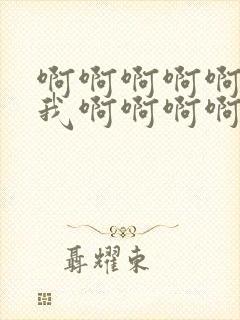 啊啊啊啊啊
我啊啊啊啊
聂耀东